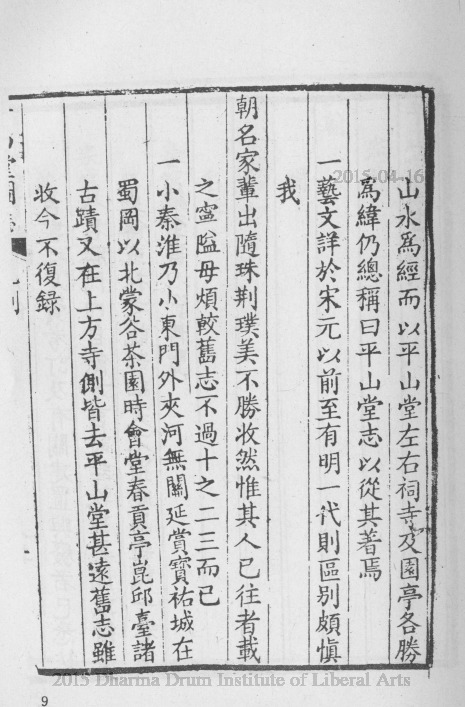 山水爲經而以平山堂左右祠寺及園亭各勝
爲緯仍總稱曰平山堂志以從其著焉
一藝文詳於宋元以前至有明一代則區別頗愼
我
朝名家輩出隨珠荆璞美不勝收然惟其人已往者載
之寧隘毋煩較舊志不過十之二三而已
一小秦淮乃小東門外夾河無關延賞寶祐城在
蜀岡以北蒙谷茶園時會堂春貢亭崑邱臺諸
古蹟又在上方寺側皆去平山堂甚遠舊志雖
收今不復録
2015-04-16
2015 Dharma Drum Institute of Liberal Arts
9